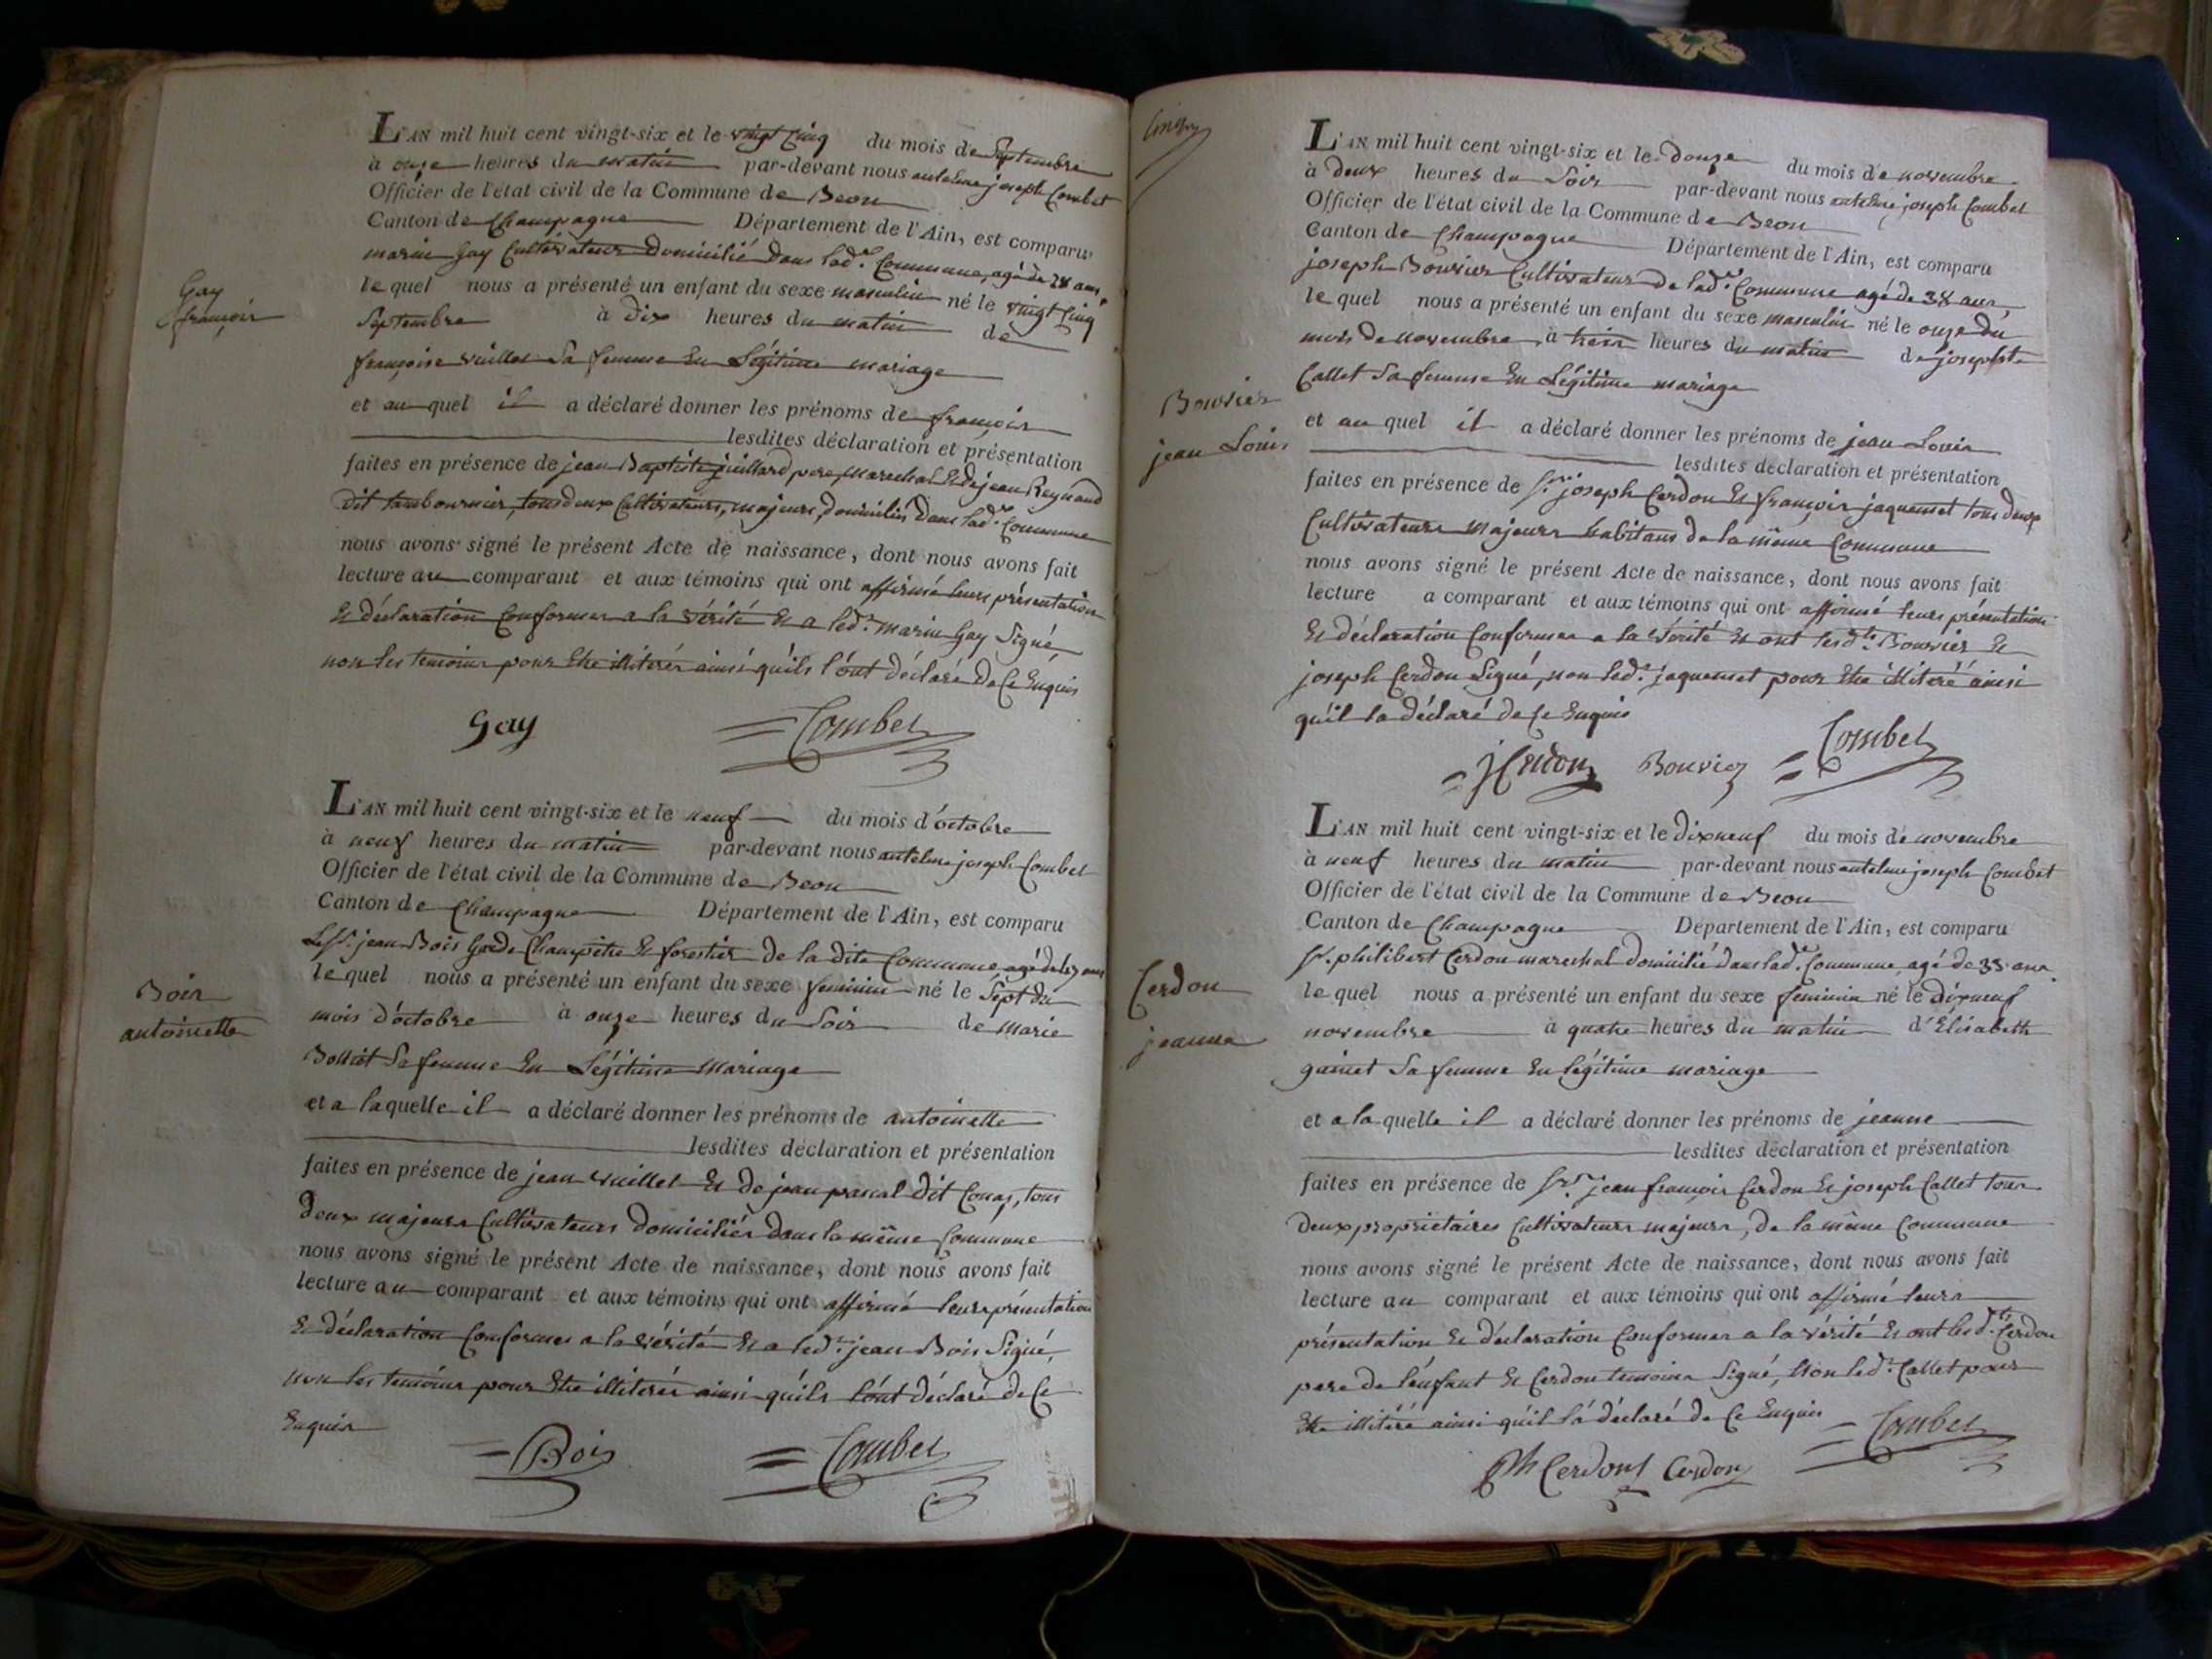 L'AN mil huit cent vingt-six et le vingt cinq du mois de Septembre
à onze heures du matin par-devant nous antelme joseph Combet
Officier de l'état civil de la Commune de Beon
Canton de Champagne Département de l'Ain, est comparu
marin Gay Cultivateur domicilié dans lad.e Commune, agé de 28 ans,
lequel nous a présenté un enfant du sexe masculin né le vingt cinq
Septembre à dix heures du matin de
françoise vuillet Sa femme En Légitime mariage
et au quel il a déclaré donner les prénoms de françois
lesdites déclaration et présentation
faites en présence de jean Baptiste juillard pere, Marechal Et de jean Reynaud
dit tambournier, tous deux Cultivateurs, majeurs, domiciliés dans lad.e Commune
nous avons signé le présent Acte de naissance, dont nous avons fait
lecture au comparant et aux témoins qui ont affirmé leurs présentation
Et déclaration Conformes a la vérité Et a led.t marin Gay Signé,
non les temoins pour Etre illiterés ainsi qu'ils l'ont déclaré de Ce Enquis
Gay Combet
Gay
françois
L'AN mil huit cent vingt-six et le neuf du mois d'octobre
à neuf heures du matin par-devant nous antelme joseph Combet
Officier de l'état civil de la Commune de Beon
Canton de Champagne Département de l'Ain, est comparu
Le Sr. jean Bois Garde Champêtre Et forestier de la dite Commune agé de ans
lequel nous a présenté un enfant du sexe feminin né le Sept du
mois d'octobre à onze heures du Soir de Marie
Sa femme En Légitime Mariage
et a laquelle il a déclaré donner les prénoms de antoinette
lesdites déclaration et présentation
faites en présence de jean vuillet Et de jean pascal dit , tous
deux majeurs Cultivateurs domiciliés dans la même Commune
nous avons signé le présent Acte de naissance, dont nous avons fait
lecture au comparant et aux témoins qui ont affirmé leurs présentation
Et déclaration Conformes a la vérité Et a led.t jean Bois Signé,
non les temoins pour Etre illiterés ainsi qu'ils l'ont déclaré de Ce
Enquis
Bois Combet
Bois
antoinette
L'AN mil huit cent vingt-six et le douze du mois de novembre
à deux heures du Soir par-devant nous antelme joseph Combet
Officier de l'état civil de la Commune de Beon
Canton de Champagne Département de l'Ain, est comparu
joseph Bouvier Cultivateur de lad.e Commune agé de 38 ans
lequel nous a présenté un enfant du sexe masculin né le onze du
mois de novembre à trois heures du matin de josephte
Callet Sa femme En Légitime mariage
et au quel il a déclaré donner les prénoms de jean Louis
lesdites déclaration et présentation
faites en présence de Srs. joseph Cerdon Et françois jaquemet tous deux
Cultivateurs Majeurs habitans de la même Commune
nous avons signé le présent Acte de naissance, dont nous avons fait
lecture a comparant et aux témoins qui ont affirmé leurs présentation
Et déclaration Conformes a la vérité Et ont lesd.ts Bouvier Et
joseph Cerdon Signé, non led.t jaquemet pour Etre illiteré ainsi
qu'il la déclaré de Ce Enquis
J Cerdon Bouvier Combet
Bouvier
jean Louis
L'AN mil huit cent vingt-six et le dixneuf du mois de novembre
à neuf heures du matin par-devant nous antelme joseph Combet
Officier de l'état civil de la Commune de Beon
Canton de Champagne Département de l'Ain, est comparu
Sr. philibert Cerdon marechal domicilié dans lad.e Commune, agé de 35 ans
lequel nous a présenté un enfant du sexe feminin né le dixneuf
novembre à quatre heures du matin d'Elisabeth
guinet Sa femme En légitime mariage
et a la quelle il a déclaré donner les prénoms de jeanne
lesdites déclaration et présentation
faites en présence de Srs. jean françois Cerdon Et joseph Callet tous
deux proprietaires Cultivateurs majeurs, de la même Commune
nous avons signé le présent Acte de naissance, dont nous avons fait
lecture au comparant et aux témoins qui ont affirmé leurs
présentation Et déclaration Conformes a la vérité Et ont lesd.ts Cerdon
pere de l'enfant Et Cerdon temoins Signé, Non led.t Callet pour
Etre illiteré ainsi qu'il l'a déclaré de Ce Enquis
Ph Cerdon Cerdon Combet
Cerdon
jeanne